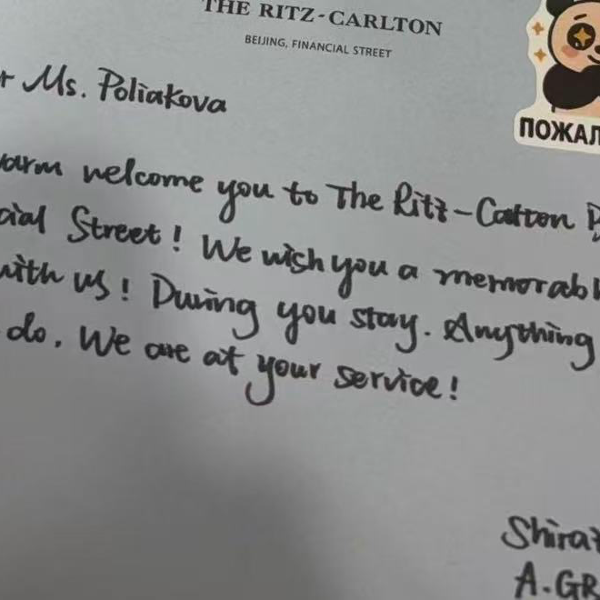 THE RITZ-CARLTON
BEIJING, FINANCIAL STREET
ПОЖАЛ
r Ms. Poliakova
warm welcome you to The Ritz-Calton B
cial Street! We wish you a memorab
with us! During you stay. Anything
do. We are at your service!
Shiraz
A.GR